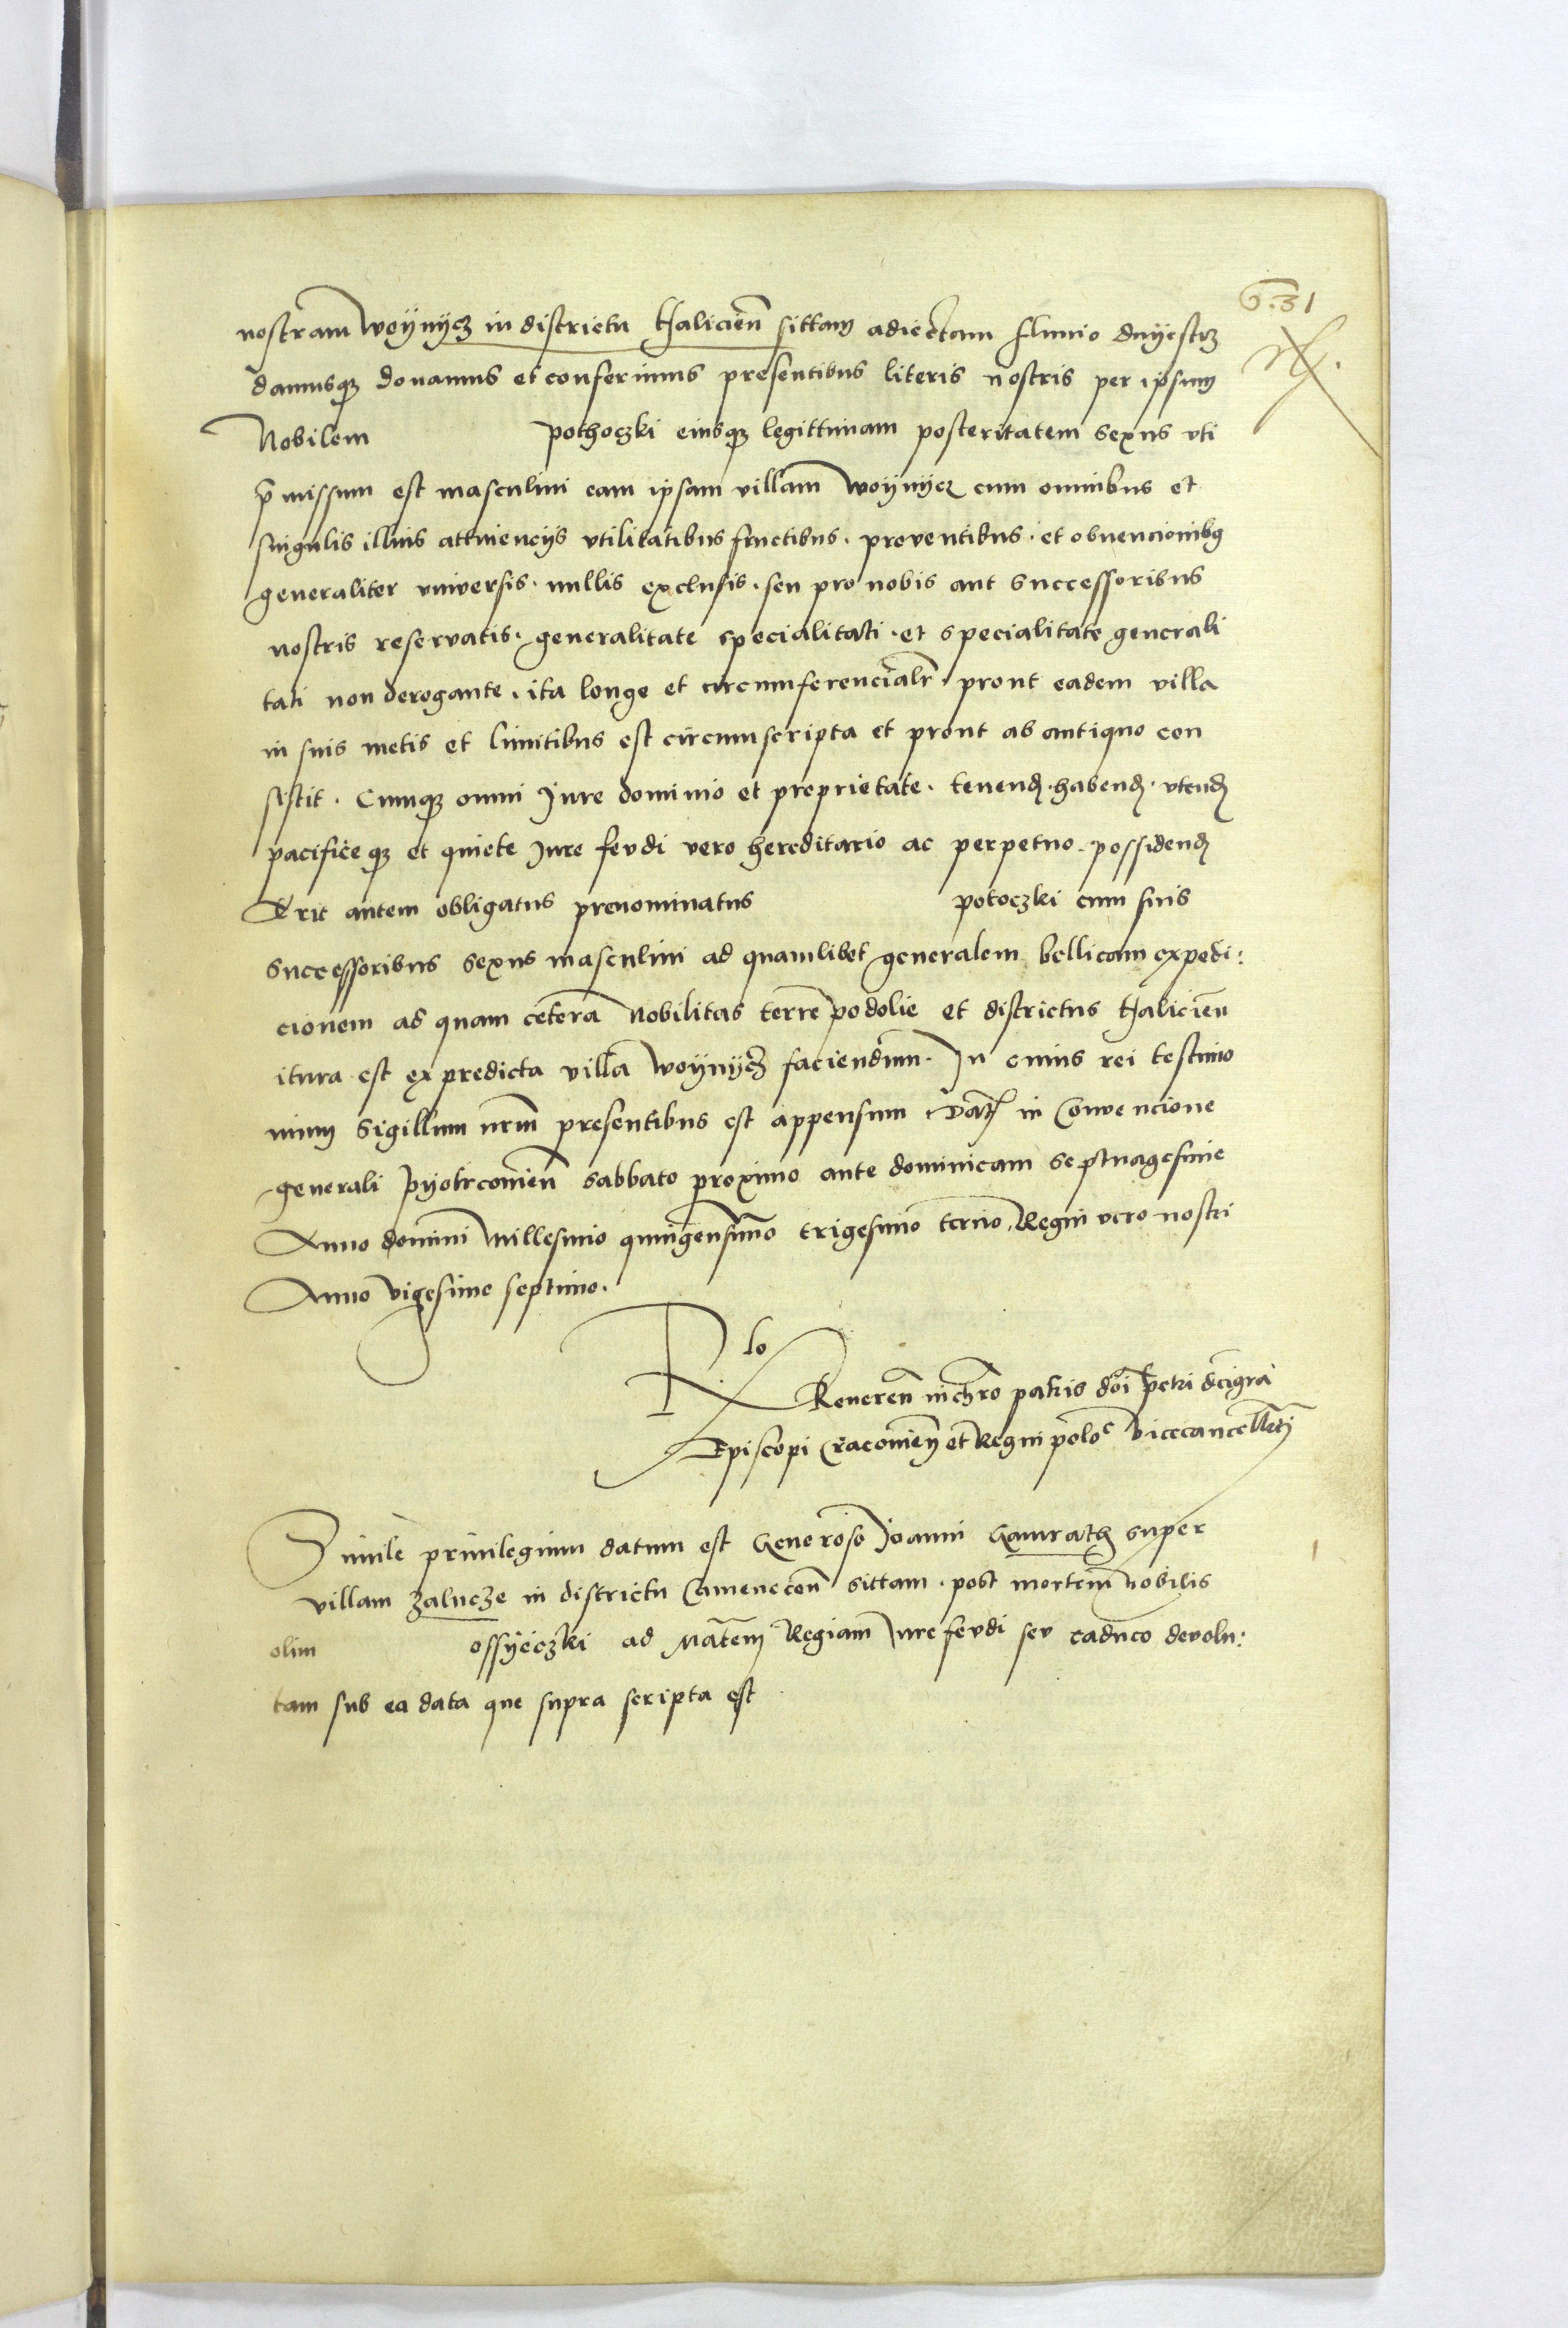 nostram woÿnÿcz in districtu Haliciēn sittam adiectam fluuio dnÿestrz
damusqz donamus et conferimus presentibus literis nostris per ipsum
Nobilem pothoczki eiusqz legittimam posteritatem sexus vti
p̄missum est masculini eam ipsam villam woÿnÿcz cum omnibus et
singulis illius attinencÿs vtilitatibus fructibus . proventibus . et obuencionibq
generaliter vniversis . nullis exclusis . seu pro nobis aut successoribus
nostris reservatis . generalitate specialitati . et specialitate generali
tati non derogante . ita longe et circumferencialr̄ prout eadem villa
in suis metis et limitibus est circumscripta et prout ab antiquo con
sistit . Cumqz omni Jure dominio et proprietate . tenend . habend . vtend
pacificeqz et quiete Jure fevdi vero hereditario ac perpetuo possidend
Erit autem obligatus prenominatus potoczki cum suis
successoribus sexus masculini ad quamlibet generalem bellicam expedi:
cionem ad quam cetera nobilitas terre podolie et districtus Haliciēn
itura est ex predicta villa woÿnÿcz faciendum . In cuius rei testimo
nium Sigillum nrm̄ presentibus est appensum Dat in Convencione
generali pÿotrconieñ sabbato proximo ante dominicam septuagesime
Anno domini Millesimo quingensimo trigesimo tercio Regni vero nostri
Anno vigesimo septimo .
Rlo
Reueren in chro patris doi petri dei gra
Episcopi Cracouieñ et Regni polo Vicecancellarÿ
Simile priuilegium datum est Generoso Joanni Gamrath super
villam Zalucze in districtu Camenecen̄ sittam . post mortem nobilis
olim ossÿeczki ad Matem Regiam Jure fevdi sev caduco devolu:
tam sub ea data que supra scripta est